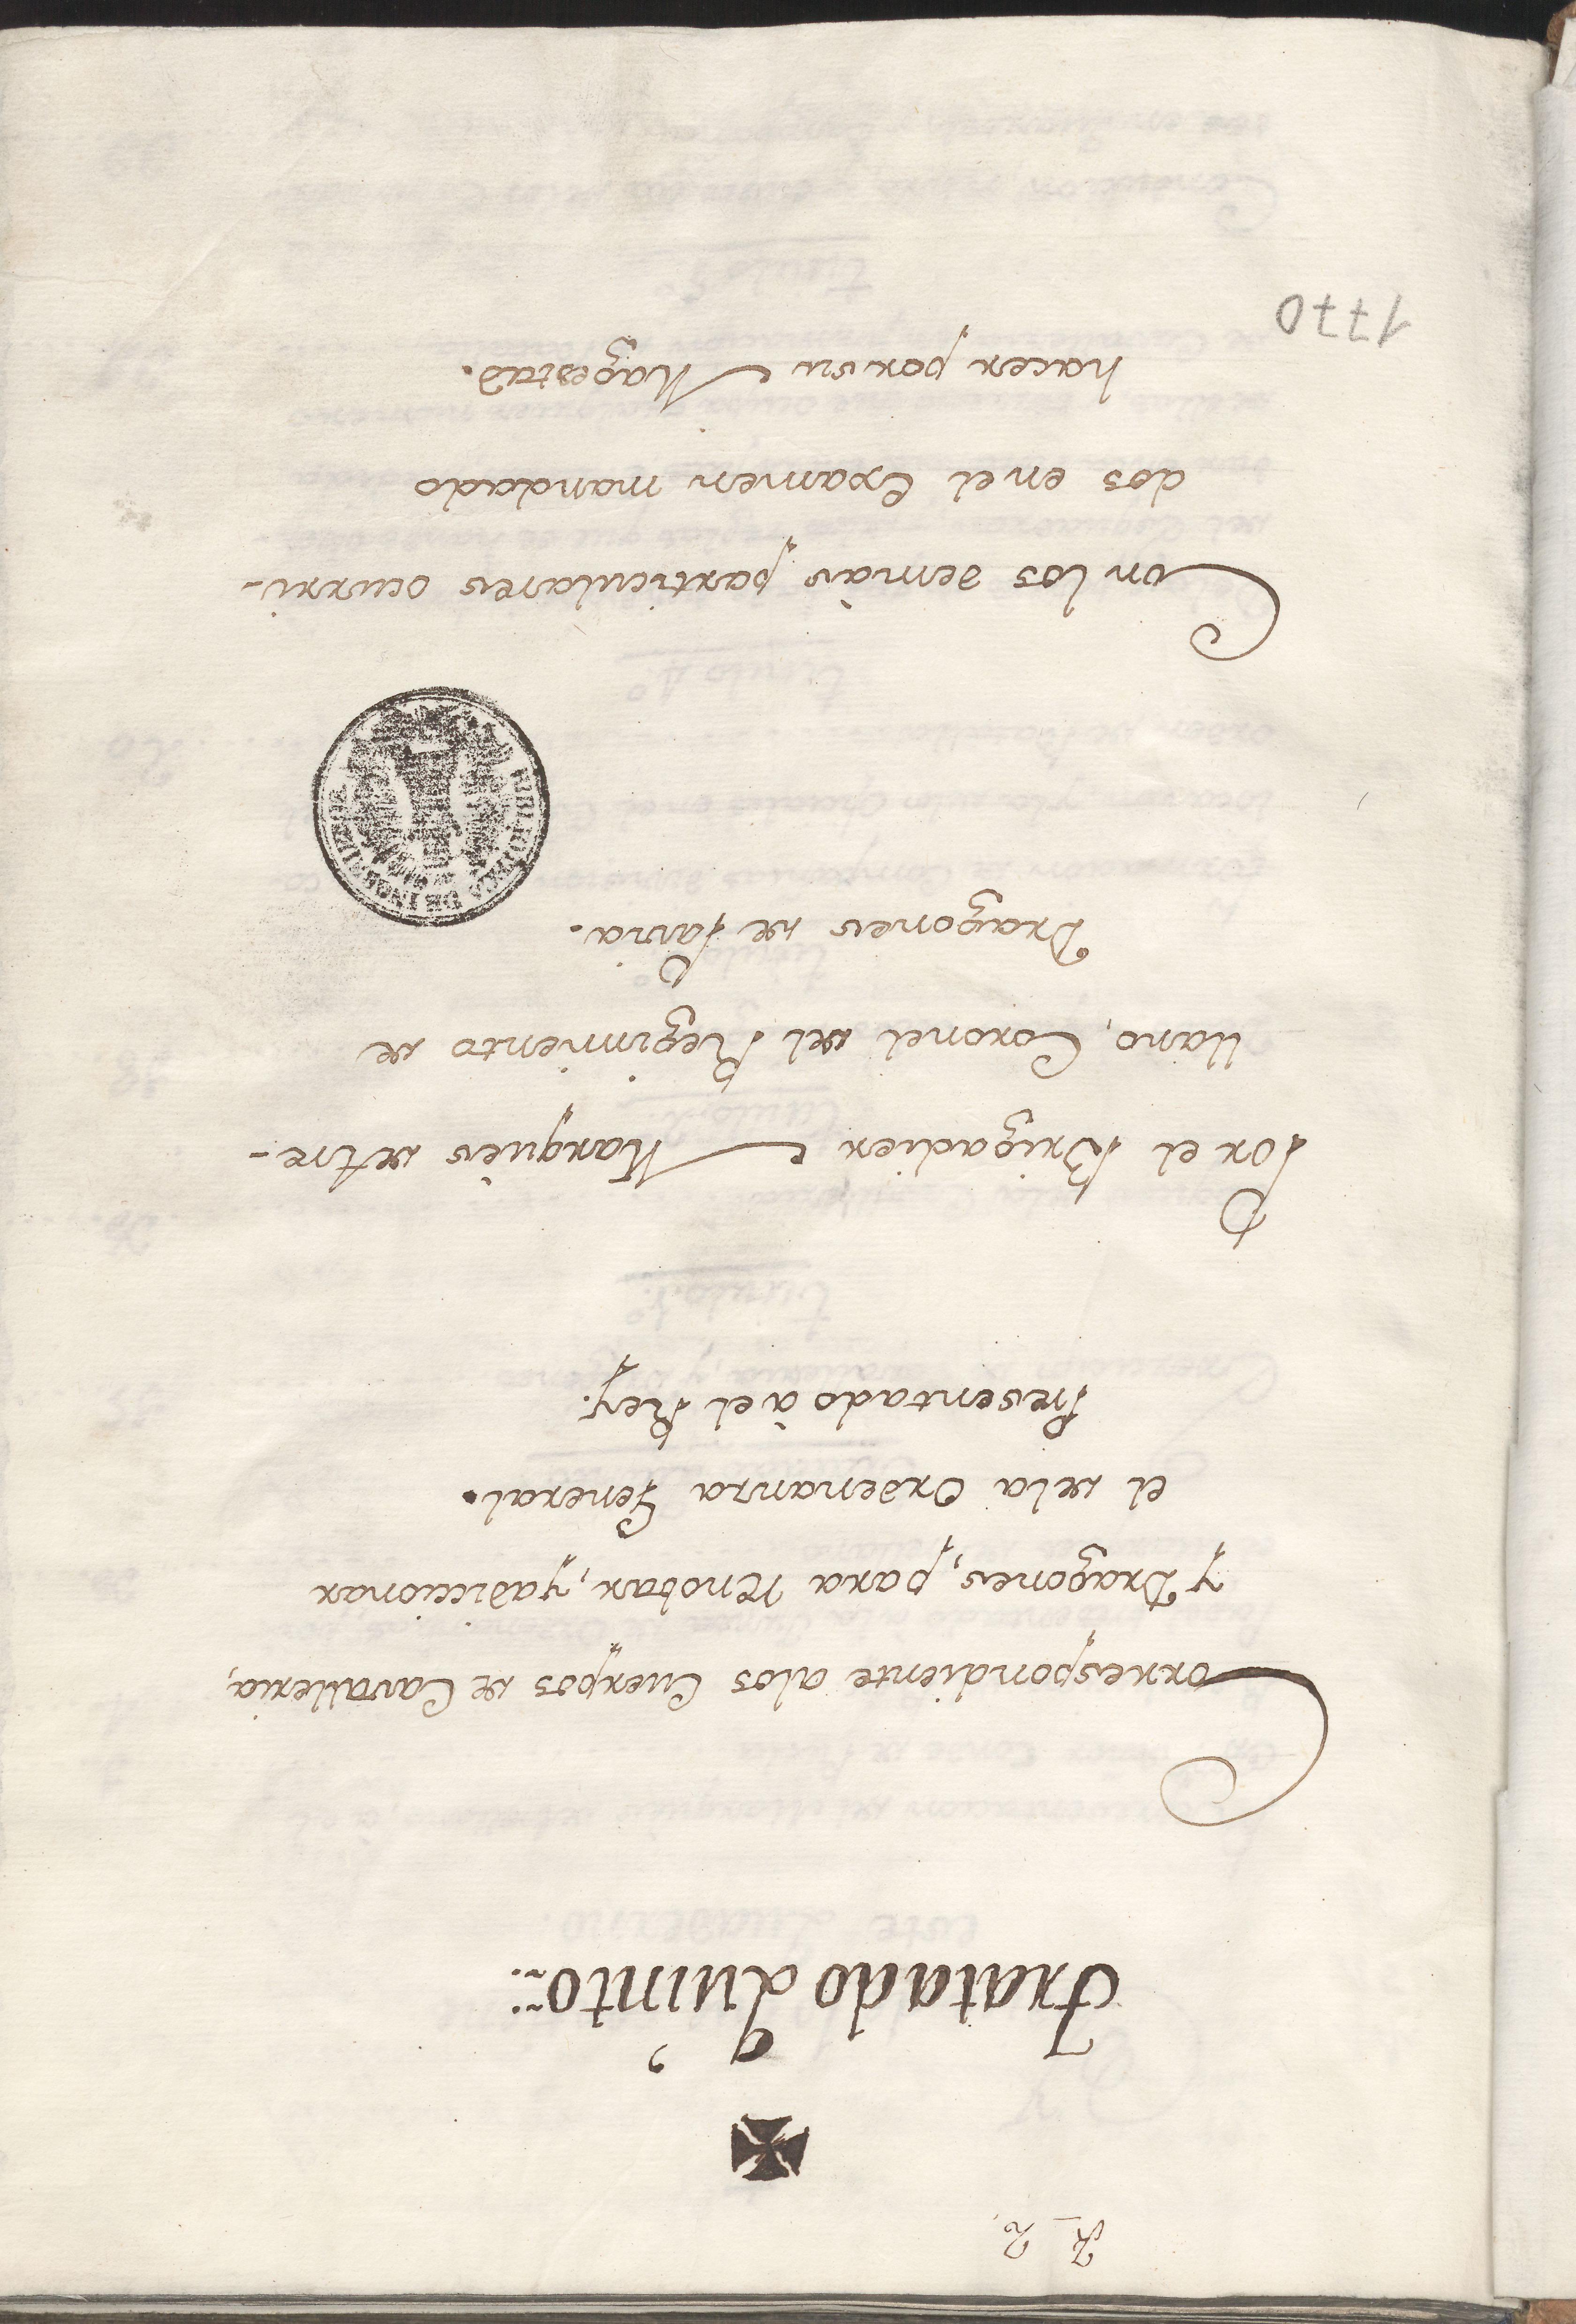 R_2
Tratado Quinto
Correspondiente a los Cuerpos de Cavalleria,
y Dragones, para renobar, y adiccionar
el de la Ordenanza General.
Presentado à el Rey.
Por el Brigadier Marquès de Tre-
llano, Coronel del Regimiento de
Dragones de Pavia.
Con los demàs particulares ocurri-
dos en el Examen mandado
hacer por su Magestad.
1770